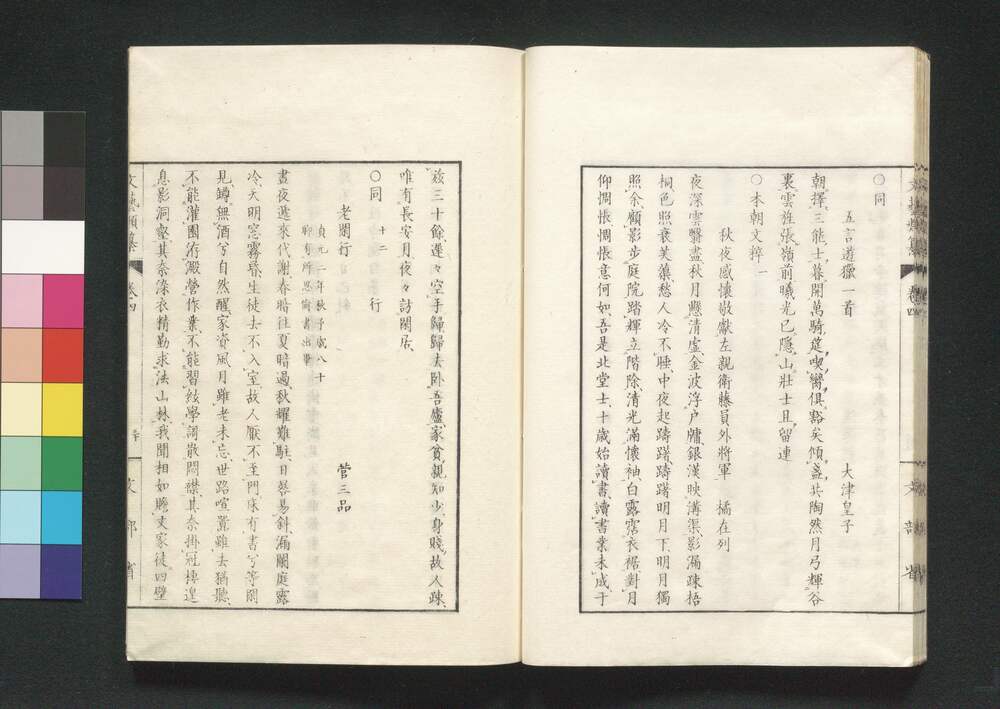 〇同
五言遊獵一首　大津皇子
朝擇三能士、暮開萬騎筵、喫臠俱豁矣、傾盞共陶然、月弓輝谷
裏、雲旌張嶺前、曦光已隱山、壯士且留連
〇本朝文粹一
秋夜感懷敬獻左親衛藤員外將軍　橘在列
夜深雲翳盡、秋月懸清虛、金波浮户牖、銀漢映溝渠、影漏疎梧
桐、色照衰芙蕖、愁人冷不睡、中夜起躊躇、躊躇明月下、明月獨
照余、顧影步庭院、踏輝立階除、清光滿懷袖、白露霑衣裾、對月
仰惆悵、惆悵意何如、吾是北堂士、十歲始讀書、讀書業未成、于
茲三十餘、遲々空手歸、歸去臥吾廬、家貧親知少、身賤故人疎、
唯有長安月、夜々訪閑居、
〇同　十二　行
老閑行　菅三品
貞元二年秋予歲八十
聊有所思衛書出畢
晝夜遞來代謝、春暗往夏暗過、秋耀難駐日晷易斜、漏闌庭露
冷、天明窓霧昏、生徒去不入室、故人厭不至門、床有書兮等閑
見、罇無酒兮自然醒、家資風月雖老未忘、世路喧囂雖去猶聽、
不能灌園、治澱營作業、不能習絃學調散悶襟、其奈掛冠棲遑
息影洞壑、其奈染衣精勤求法山林、我聞相如賺丈家徒四壁
文藝類纂　卷四　文部省